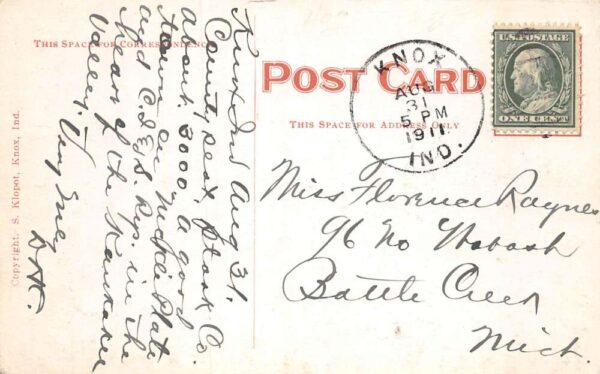 THIS SPACE FOR CORRESPONDENCE
POST CARD
THIS SPACE FOR ADDRESS ONLY
Copyright. S. Klopot, Knox, Ind.
U.S. POSTAGE
ONE CENT
KNOX
AUG
31
5 PM
1911
IND.
Knox Ind Aug 31.
County seat, Stark Co.
about 3000 A good
town on Nickle Plate
and C. I & S. Ry. in the
heart of the Kankakee
Valley. Very
Miss Florence Raynes
96 No Wabash
Battle Creek
Mich.